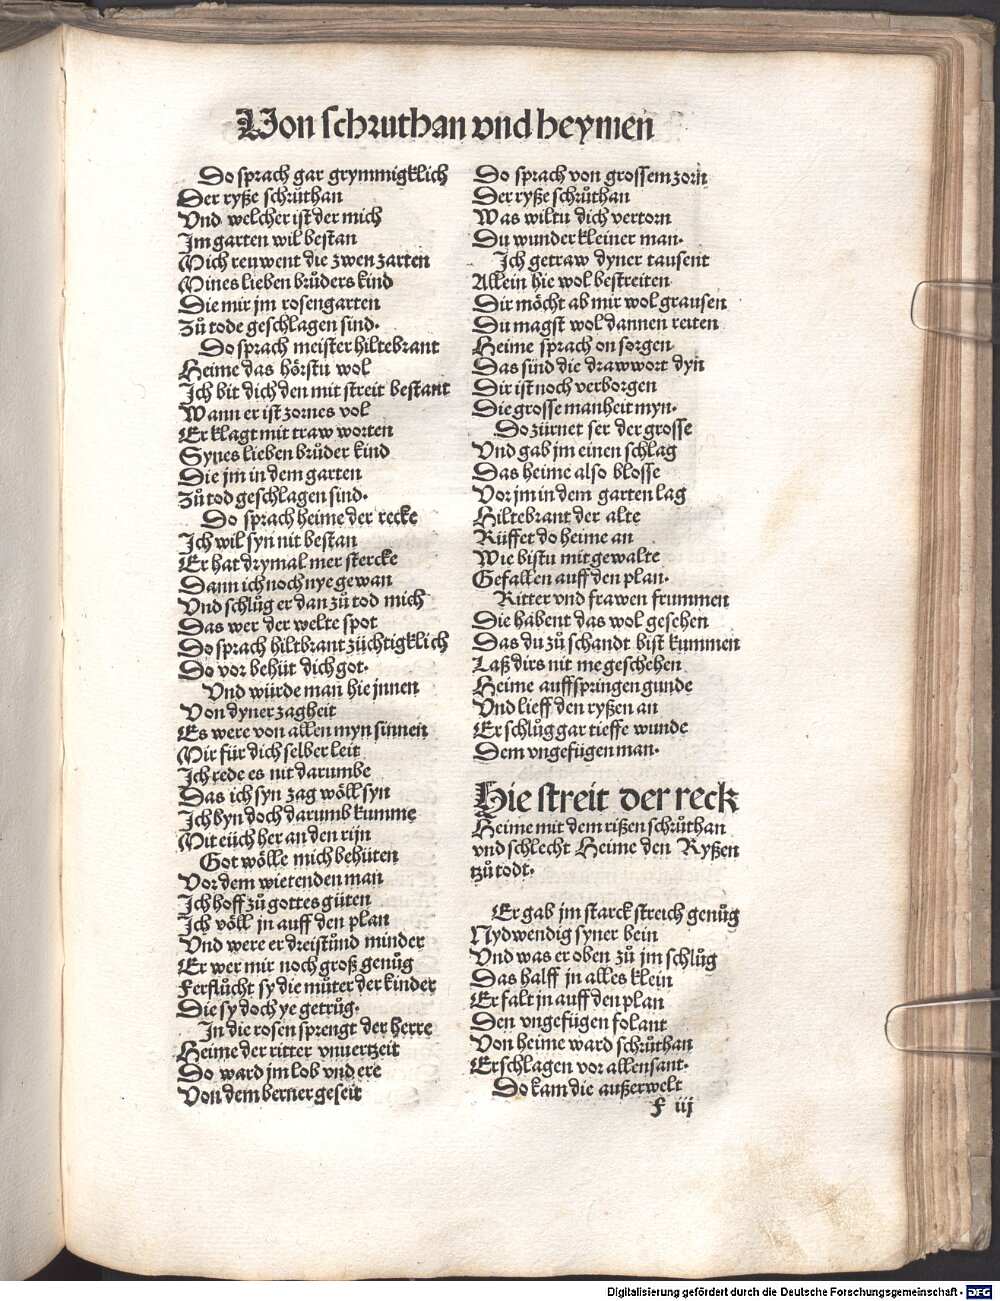 Von schruthan vnd heymen
Do sprach gar grymmigklich
Der ryße schrůthan
Vnd welcher ist der mich
Im garten wil bestan
Mich reuwent die zwen zarten
Mines lieben brůders kind
Die mir jm rosengarten
Zů tode geschlagen sind.
Do sprach meister hiltebrant
Heime das hörstu wol
Ich bit dich den mit streit bestant
Wann er ist zornes vol
Er klagt mit traw worten
Synes lieben brůder kind
Die jm in dem garten
Zů tod geschlagen sind.
Do sprach heime der recke
Ich wil syn nit bestan
Er hat drymal mer stercke
Dann ich noch nye gewan
Vnd schlůg er dan zů tod mich
Das wer der welte spot
Do sprach hiltbrant züchtigklich
Do vor behüt dich got.
Vnd würde man hie jnnen
Von dyner zagheit
Es were von allen myn sinnen
Mir für dich selber leit
Ich rede es nit darumbe
Das ich syn zag wöll syn
Ich byn doch darumb kumme
Mit eüch her an den rijn
Got wölle mich behüten
Vor dem wietenden man
Ich hoff zů gottes güten
Ich völl jn auff den plan
Vnd were er dreistünd minder
Er wer mir noch groß genůg
Ferflůcht sy die můter der kinder
Die sy doch ye getrůg.
In die rosen sprengt der herre
Heime der ritter vnuertzeit
Do ward jm lob vnd ere
Von dem berner geseit
Do sprach von grossem zorn
Der ryße schrůthan
Was wiltu dich vertorn
Du wunder kleiner man.
Ich getraw dyner tausent
Allein hie wol bestreiten
Dir möcht ab mir wol grausen
Du magst wol dannen reiten
Heime sprach on sorgen
Das sind die drawwort dyn
Dir ist noch verborgen
Die grosse manheit myn.
Do zürnet ser der grosse
Vnd gab jm einen schlag
Das heime also blosse
Vor jm in dem garten lag
Hiltebrant der alte
Rüffet do heime an
Wie bistu mit gewalte
Gefallen auff den plan.
Ritter vnd frawen frummen
Die habent das wol gesehen
Das du zů schandt bist kummen
Laß dirs nit me geschehen
Heime auffspringen gunde
Vnd lieff den ryßen an
Er schlůg gar tieffe wunde
Dem vngefügen man.
Hie streit der reck
Heime mit dem rißen schrůthan
vnd schlecht Heime den Ryßen
tzů todt.
Er gab jm starck streich genůg
Nydwendig syner bein
Vnd was er oben zů jm schlůg
Das halff jn alles klein
Er falt jn auff den plan
Den vngefügen folant
Von heime ward schrůthan
Erschlagen vor allensant.
Do kam die außerwelt
F iij
Digitalisierung gefördert durch die Deutsche Forschungsgemeinschaft - DFG